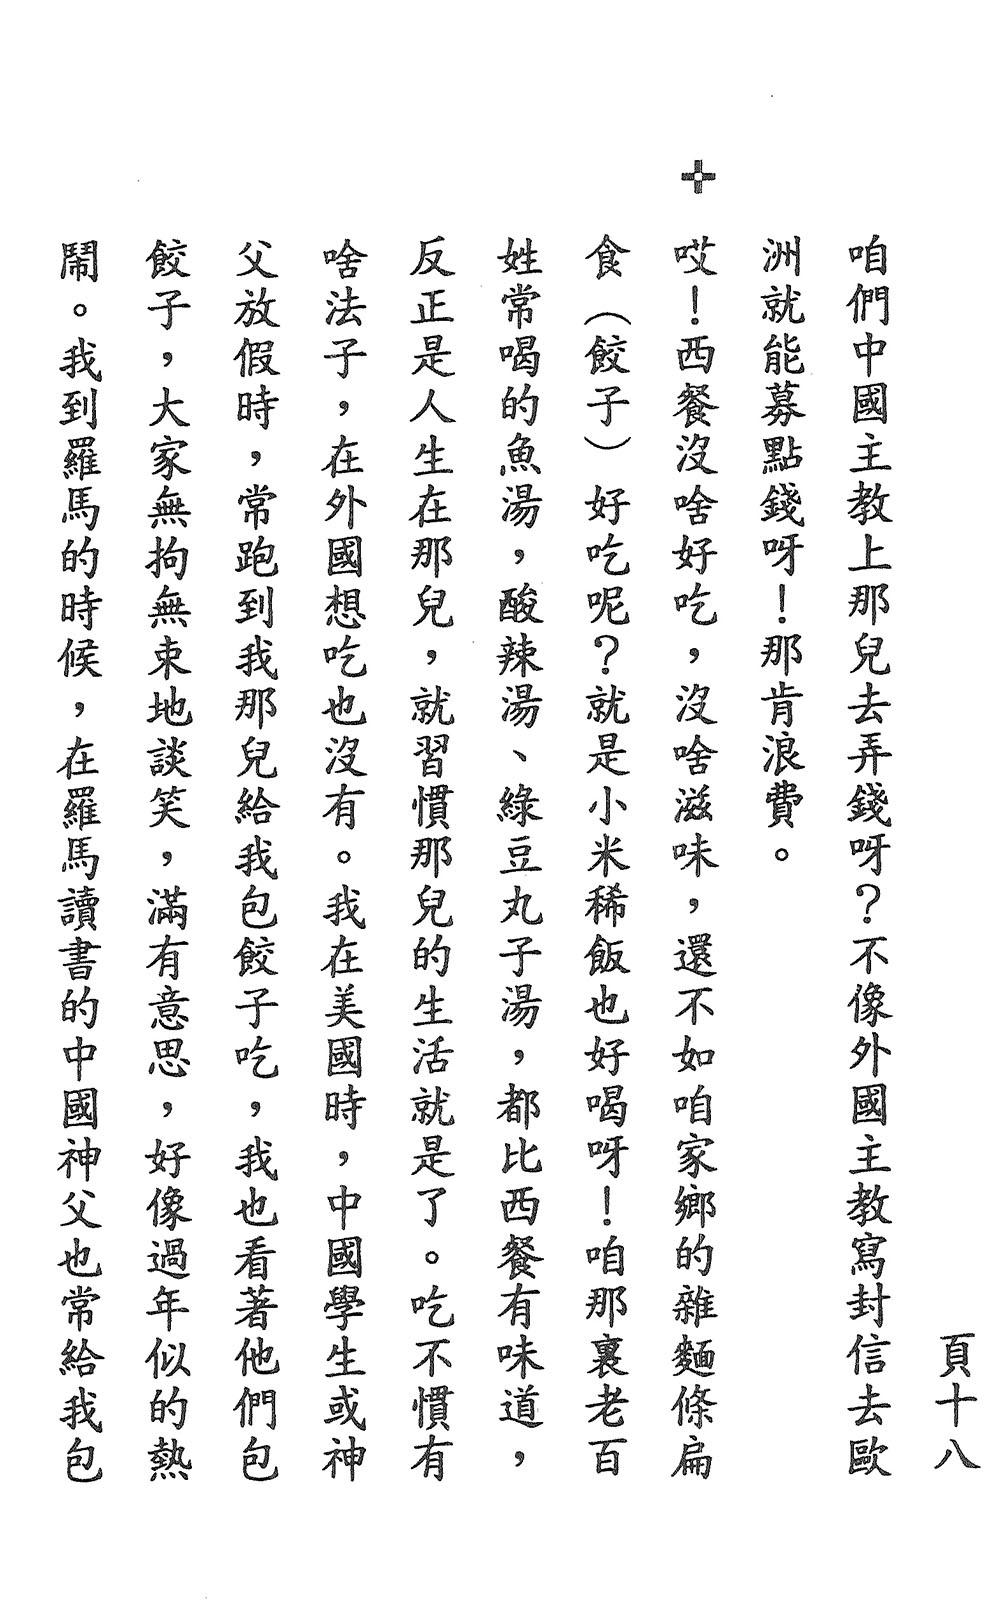 頁十八
咱們中國主教上那兒去弄錢呀？不像外國主教寫封信去歐
洲就能募點錢呀！那肯浪費。
✢
哎！西餐沒啥好吃，沒啥滋味，還不如咱家鄉的雜麵條扁
食（餃子）好吃呢？就是小米稀飯也好喝呀！咱那裏老百
姓常喝的魚湯，酸辣湯、綠豆丸子湯，都比西餐有味道，
反正是人生在那兒，就習慣那兒的生活就是了。吃不慣有
啥法子，在外國想吃也沒有。我在美國時，中國學生或神
父放假時，常跑到我那兒給我包餃子吃，我也看著他們包
餃子，大家無拘無束地談笑，滿有意思，好像過年似的熱
鬧。我到羅馬的時候，在羅馬讀書的中國神父也常給我包